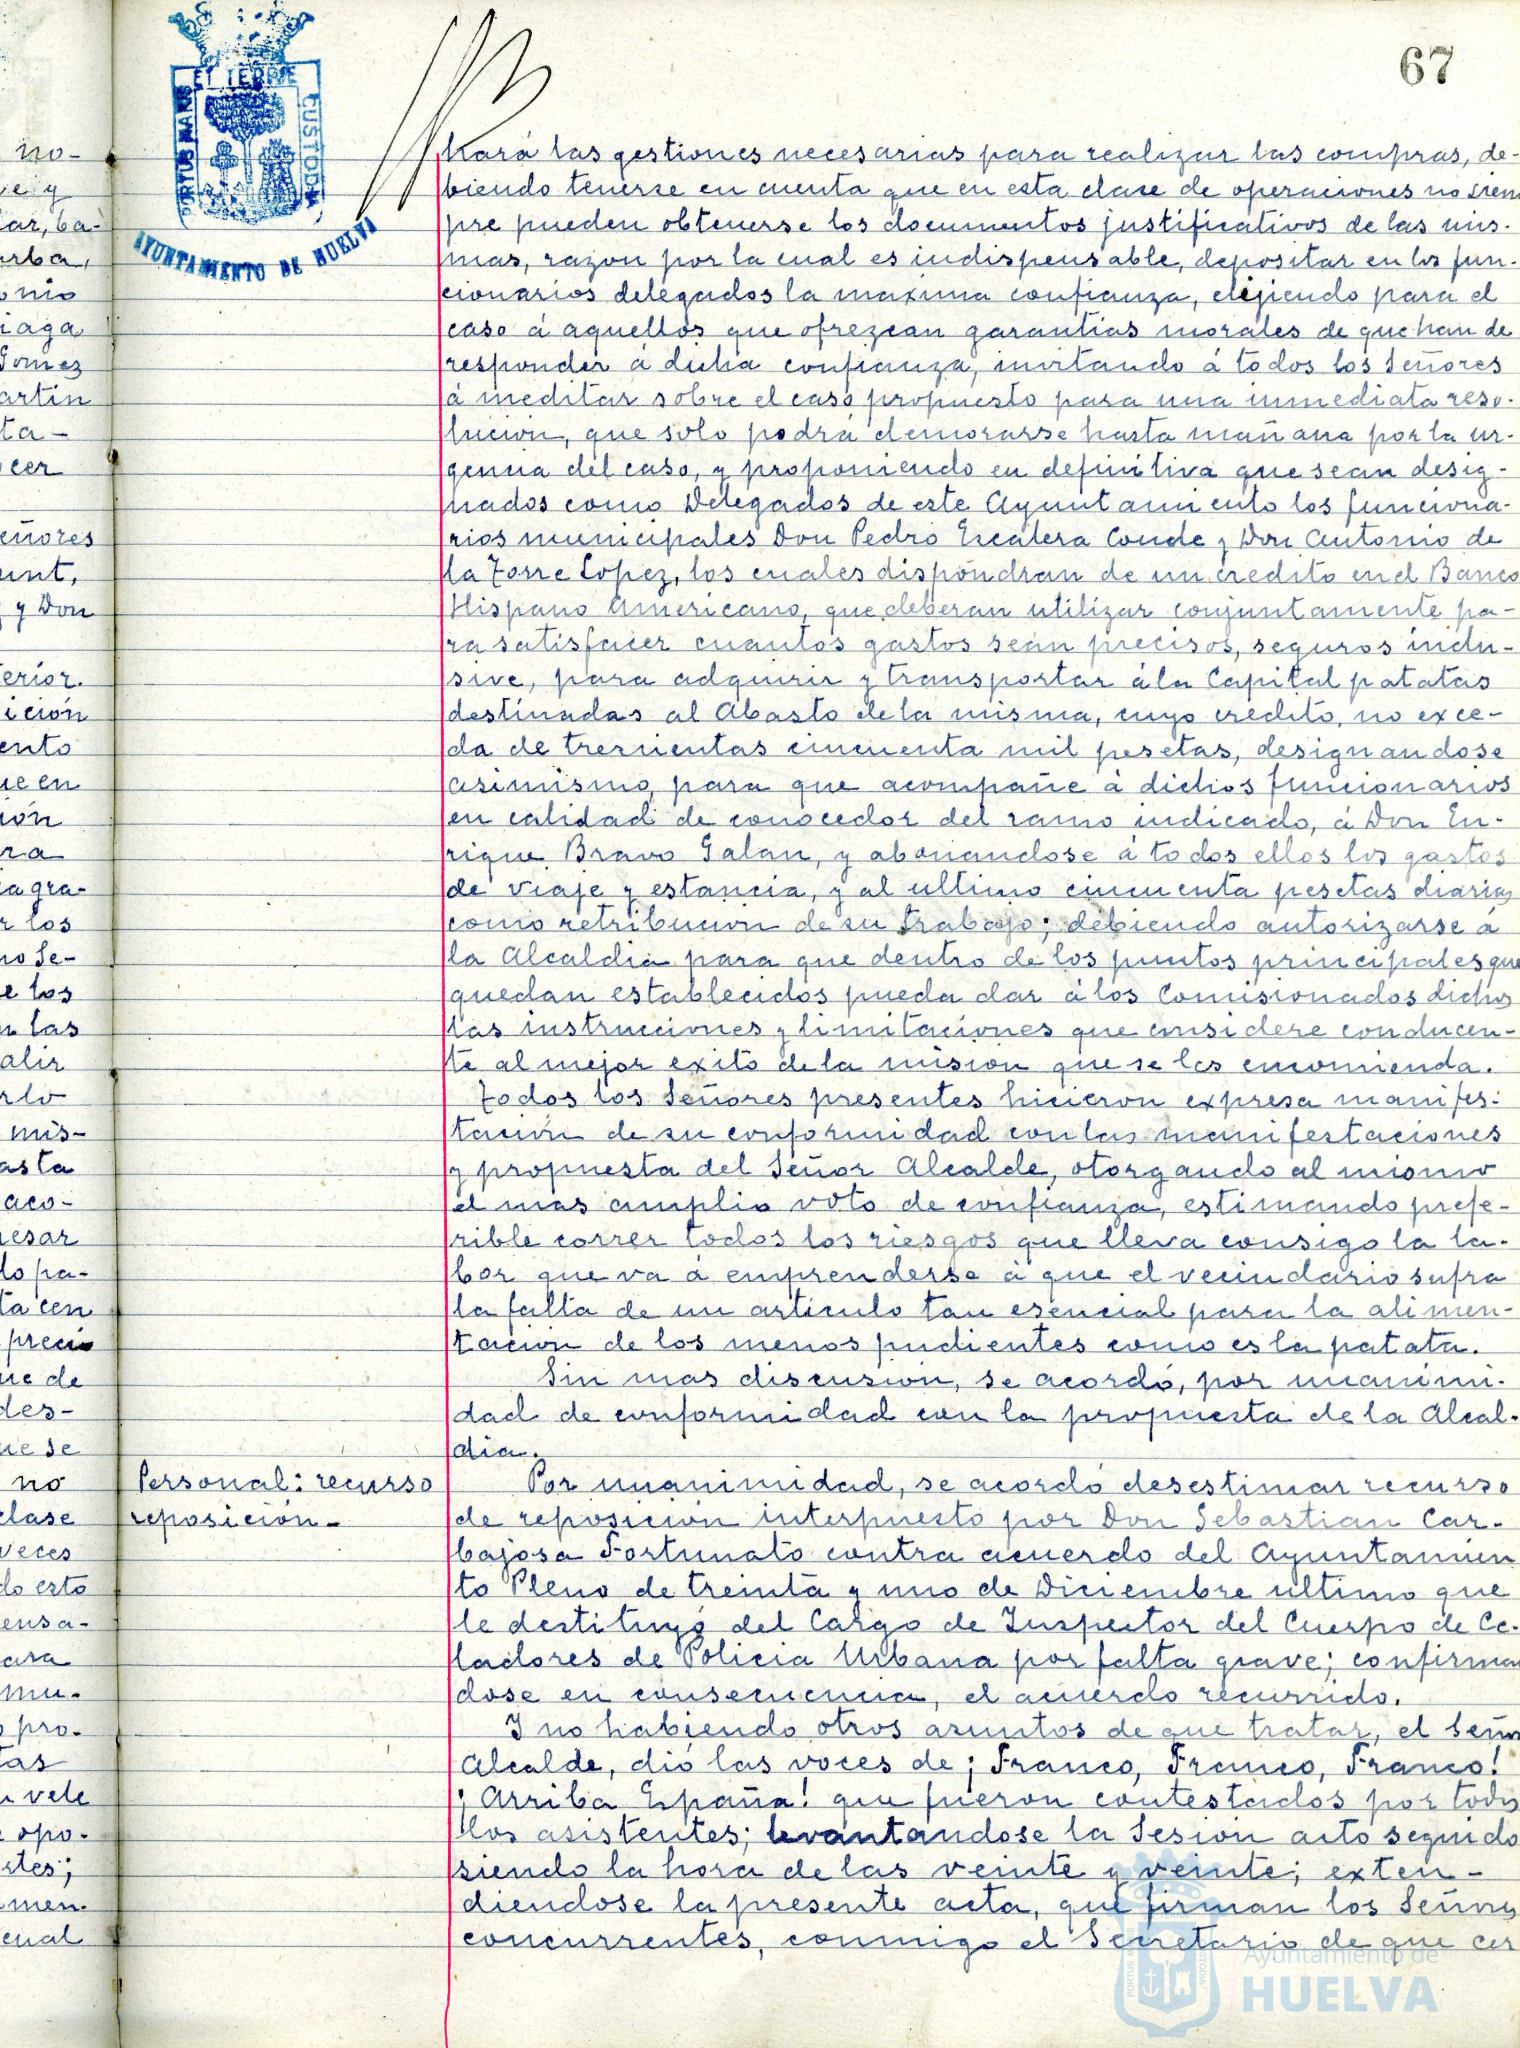 67
PORTUS MARIS ET TERRE CUSTODIA
AYUNTAMIENTO DE HUELVA
kará las gestiones necesarias para realizar las compras, de-
biendo tenerse en cuenta que en esta clase de operaciones no siem
pre pueden obtenerse los documentos justificativos de las mis-
mas, razon por la cual es indispensable, depositar en los fun-
cionarios delegados la maxima confianza, elijiendo para el
caso á aquellos que ofrezcan garantias morales de que han de
responder á dicha confianza, invitando á todos los Señores
á meditar sobre el caso propuesto para una inmediata reso-
lucion, que solo podrá demorarse hasta mañana por la ur-
gencia del caso, y proponiendo en definitiva que sean desig-
nados como Delegados de este Ayuntamiento los funciona-
rios municipales Don Pedro Escalera Conde y Don Antonio de
la Torre Lopez, los cuales dispondran de un credito en el Banco
Hispano Americano, que deberan utilizar conjuntamente pa-
ra satisfacer cuantos gastos sean precisos, seguros inclu-
sive, para adquirir y transportar á la Capital patatas
destinadas al Abasto de la misma, cuyo credito, no exce-
da de trescientas cincuenta mil pesetas, designandose
asimismo, para que acompañe á dichos funcionarios
en calidad de conocedor del ramo indicado, á Don En-
rique Bravo Galan, y abonandose á todos ellos los gastos
de viaje y estancia, y al ultimo cincuenta pesetas diarias
como retribucion de su trabajo; debiendo autorizarse á
la Alcaldia para que dentro de los puntos principales que
quedan establecidos pueda dar á los Comisionados dichos
las instrucciones y limitaciones que considere conducen-
te al mejor exito de la mision que se les encomienda.
Todos los Señores presentes hicieron expresa manifes-
tación de su conformidad con las manifestaciones
y propuesta del Señor Alcalde, otorgando al mismo
el mas amplio voto de confianza, estimando prefe-
rible correr todos los riesgos que lleva consigo la la-
bor que va á emprenderse á que el vecindario sufra
la falta de un articulo tan esencial para la alimen-
tacion de los menos pudientes como es la patata.
Sin mas discusion, se acordó, por unanimi-
dad de conformidad con la propuesta de la Alcal-
dia.
Personal: recurso
reposición-
Por unanimidad, se acordó desestimar recurso
de reposicion interpuesto por Don Sebastian Car-
bajosa Fortunato contra acuerdo del Ayuntamien
to Pleno de treinta y uno de Diciembre ultimo que
le destituyó del Cargo de Inspector del Cuerpo de Ce-
ladores de Policia Urbana por falta grave; confirman
dose en consecuencia, el acuerdo recurrido.
I no habiendo otros asuntos de que tratar, el Señor
Alcalde, dió las voces de ¡Franco, Franco, Franco!
¡Arriba España! que fueron contestados por todos
los asistentes; levantandose la Sesion acto seguido
siendo la hora de las veinte y veinte; exten-
diendose la presente acta, que firman los Señores
concurrentes, conmigo el Secretario de que cer
Ayuntamiento de
HUELVA